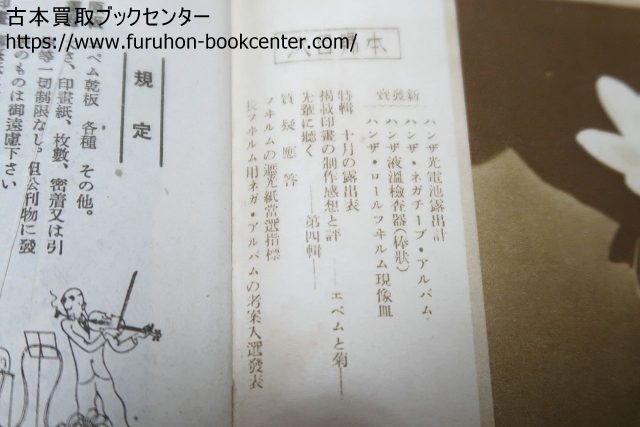 古本買取ブックセンター
https://www.furuhon-bookcenter.com/
本
新發賣
ハンザ光電池露出計
ハンザ・ネガチーブ・アルバム
ハンザ液溫檢査器(棒狀)
ハンザ・ロールフヰルム現像皿
特輯 十月の露出表
揭載印畫の制作感想と評 ――エベムと菊――
先輩に聽く ――第四輯――
質疑應答
フヰルムの遮光紙當選指標
長フヰルム用ネガ・アルバムの考案入選發表
規定
ベム乾板 各種 その他。
さ、印畫紙、枚數、密着又は引
等一切制限なし。但公刊物に發
のものは御遠慮下さい